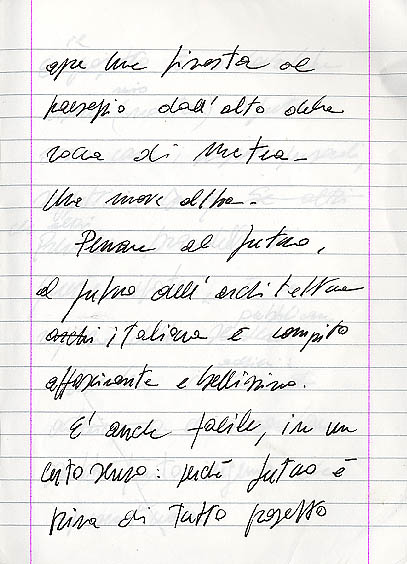 apre una finestra al
paesaggio dall'alto della
rocca di
una nuova alba.
Pensare al futuro,
al futuro dell'architettura
archi italiana è compito
affascinante e bellissimo.
E' anche facile, in un
certo senso: perché futuro è
prima di tutto progetto